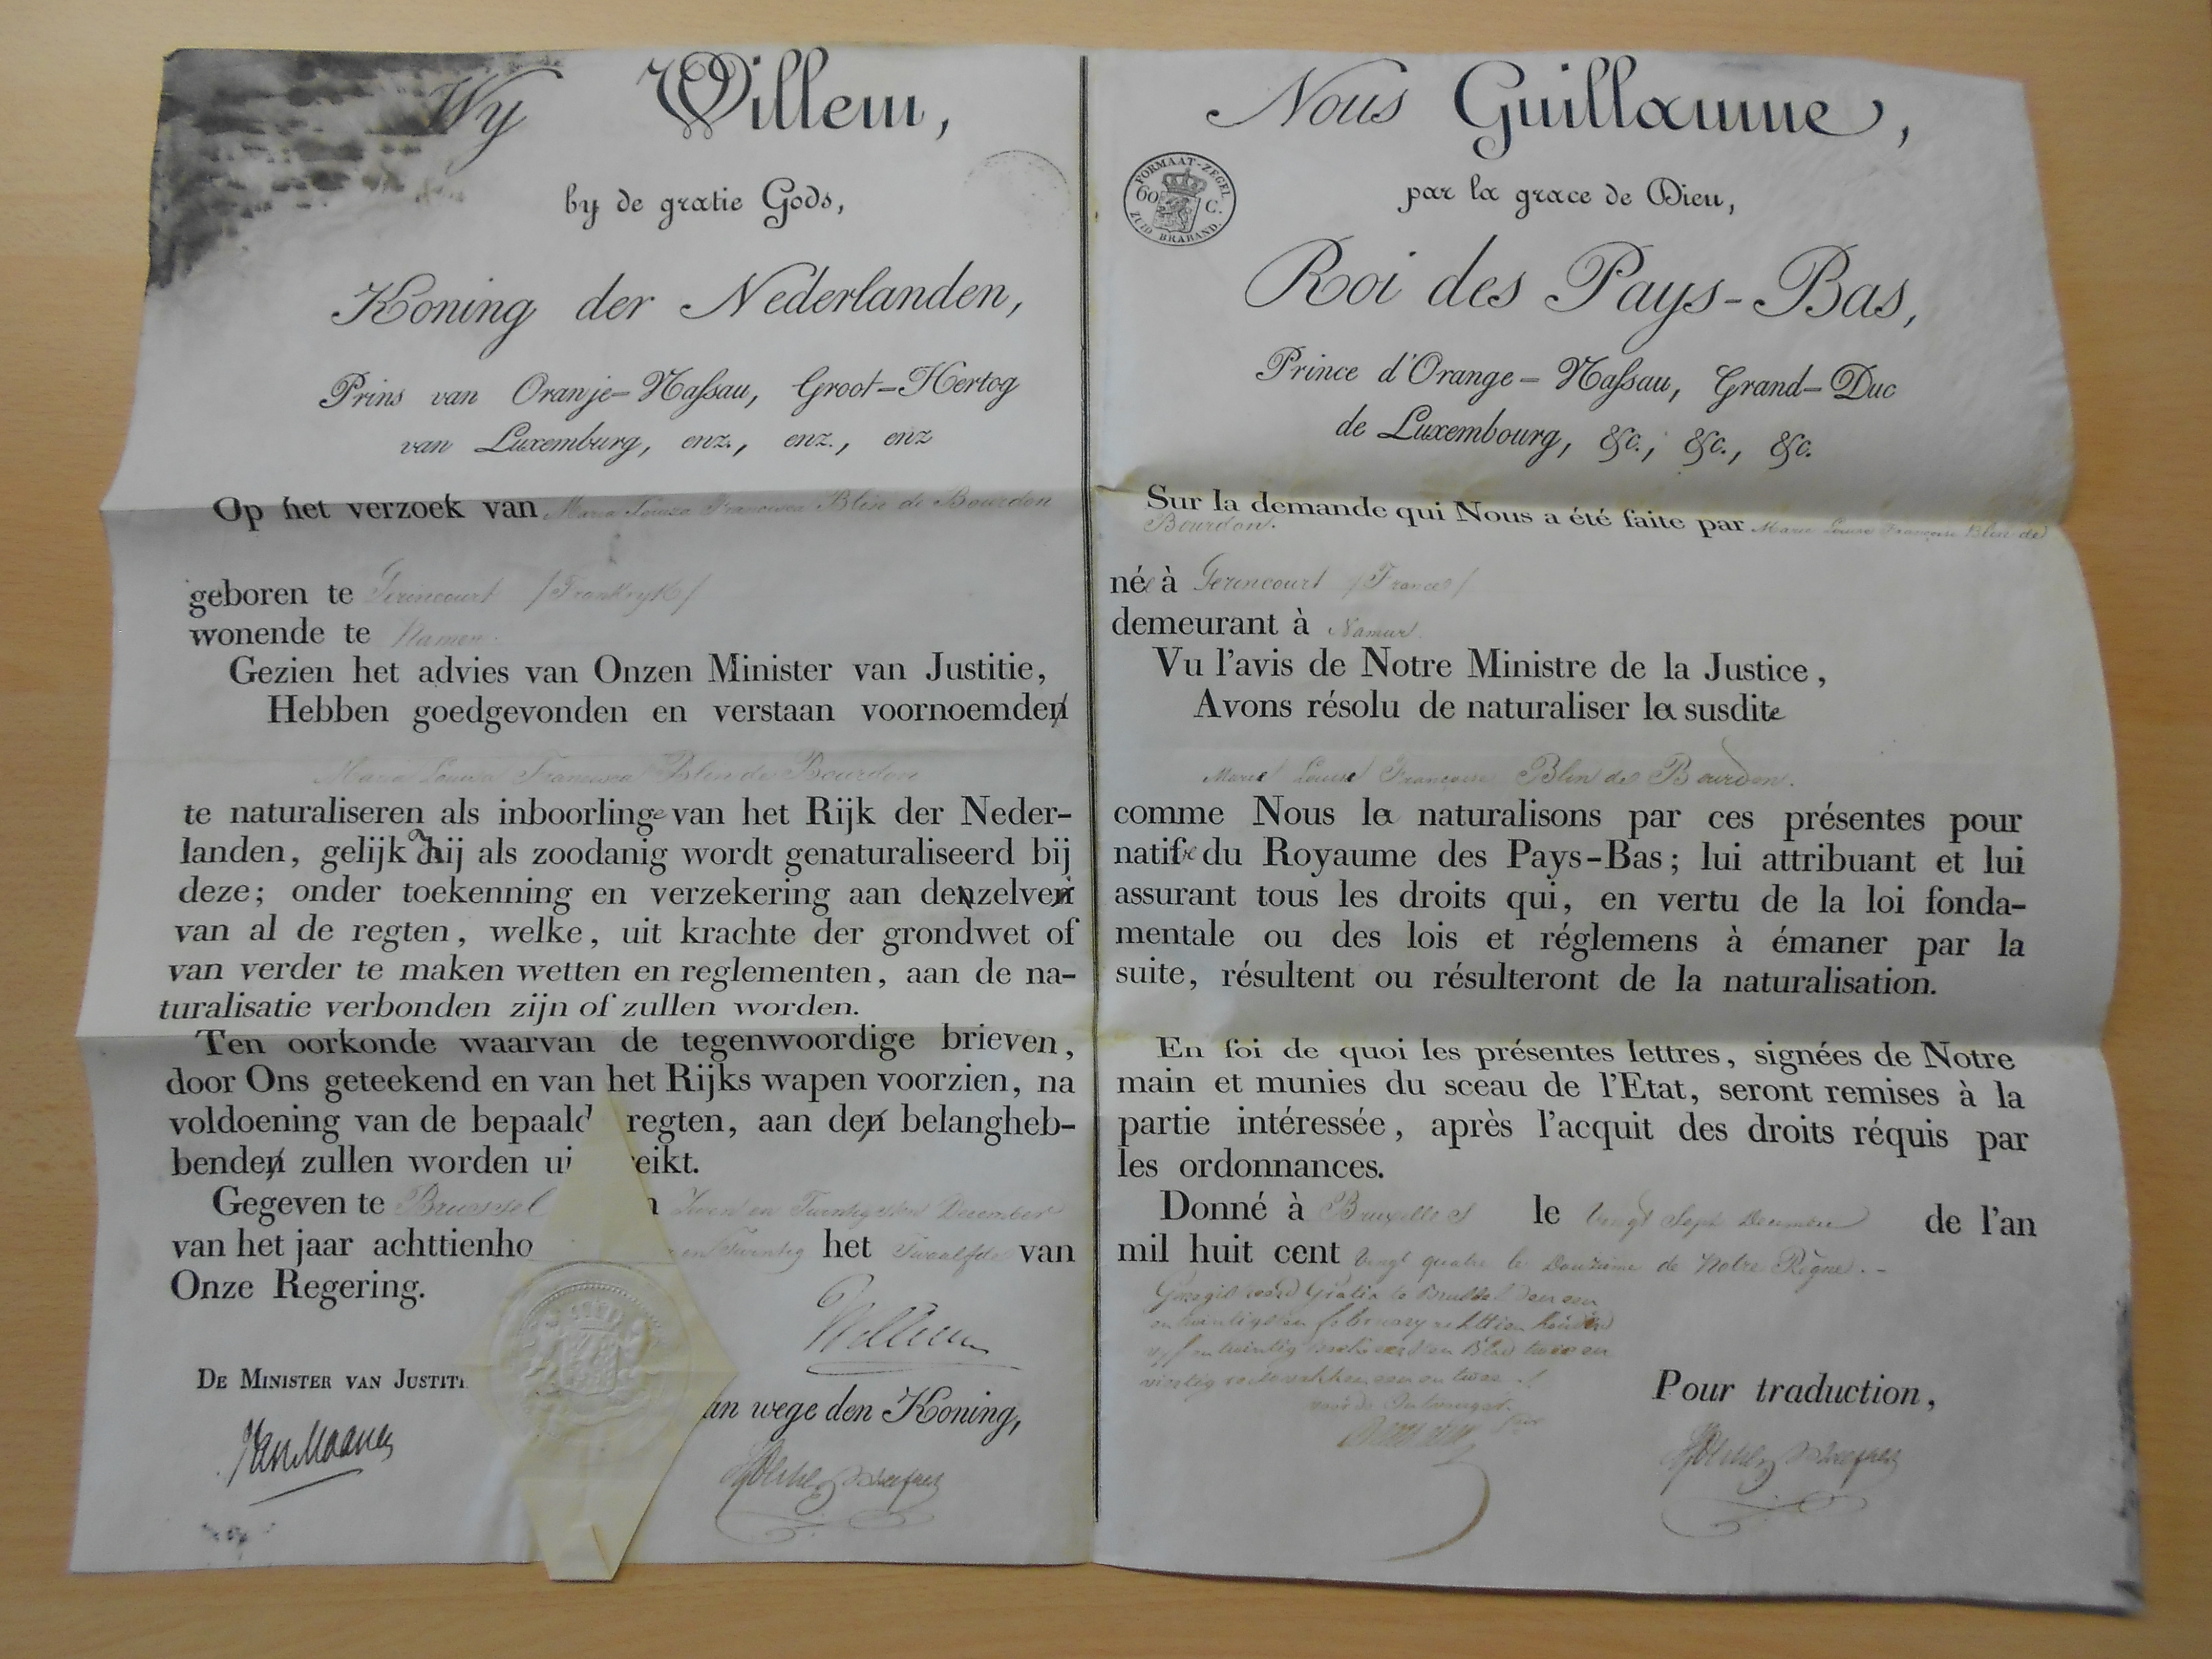 Wy Willem,
by de gratie Gods,
Koning der Nederlanden,
Prins van Oranje-Naſsau, Groot-Hertog
van Luxemburg, enz., enz., enz
Op het verzoek van Maria Louisa Francisca Blin de Bourdon
geboren te Gerincourt /Frankryk/
wonende te Namen.
Gezien het advies van Onzen Minister van Justitie,
Hebben goedgevonden en verstaan voornoemden
Maria Louisa Francisca Blin de Bourdon
te naturaliseren als inboorlinge van het Rijk der Neder-
landen, gelijk hij als zoodanig wordt genaturaliseerd bij
deze; onder toekenning en verzekering aan denzelven
van al de regten, welke, uit krachte der grondwet of
van verder te maken wetten en reglementen, aan de na-
turalisatie verbonden zijn of zullen worden.
Ten oorkonde waarvan de tegenwoordige brieven,
door Ons geteekend en van het Rijks wapen voorzien, na
voldoening van de bepaald regten, aan den belangheb-
benden zullen worden ui eikt.
Gegeven te Brussel Twintigsten December
van het jaar achttienho en Twintig het Twaalfde van
Onze Regering.
Willem
De Minister van Justiti
Van Maanen
an wege den Koning,
Nous Guillaume,
FORMAAT-ZEGEL
60 C.
ZUID BRABAND.
par la grace de Dieu,
Roi des Pays-Bas,
Prince d'Orange-Naſsau, Grand-Duc
de Luxembourg, &c., &c., &c.
Sur la demande qui Nous a été faite par Marie Louise Françoise Blin de
Bourdon.
née à Gerincourt /France/
demeurant à Namur.
Vu l'avis de Notre Ministre de la Justice,
Avons résolu de naturaliser la susdite
Marie Louise Françoise Blin de Bourdon.
comme Nous la naturalisons par ces présentes pour
native du Royaume des Pays-Bas; lui attribuant et lui
assurant tous les droits qui, en vertu de la loi fonda-
mentale ou des lois et réglemens à émaner par la
suite, résultent ou résulteront de la naturalisation.
En foi de quoi les présentes lettres, signées de Notre
main et munies du sceau de l'Etat, seront remises à la
partie intéressée, après l'acquit des droits réquis par
les ordonnances.
Donné à Bruxelles le vingt Sept Decembre de l'an
mil huit cent vingt quatre le Douzieme de Notre Règne.-
Gratis te Brussel den een
en twintigsten february achttien honderd
vyf en twintig Blad twee en
veertig een en twee
voor de Ontvanger
Pour traduction,